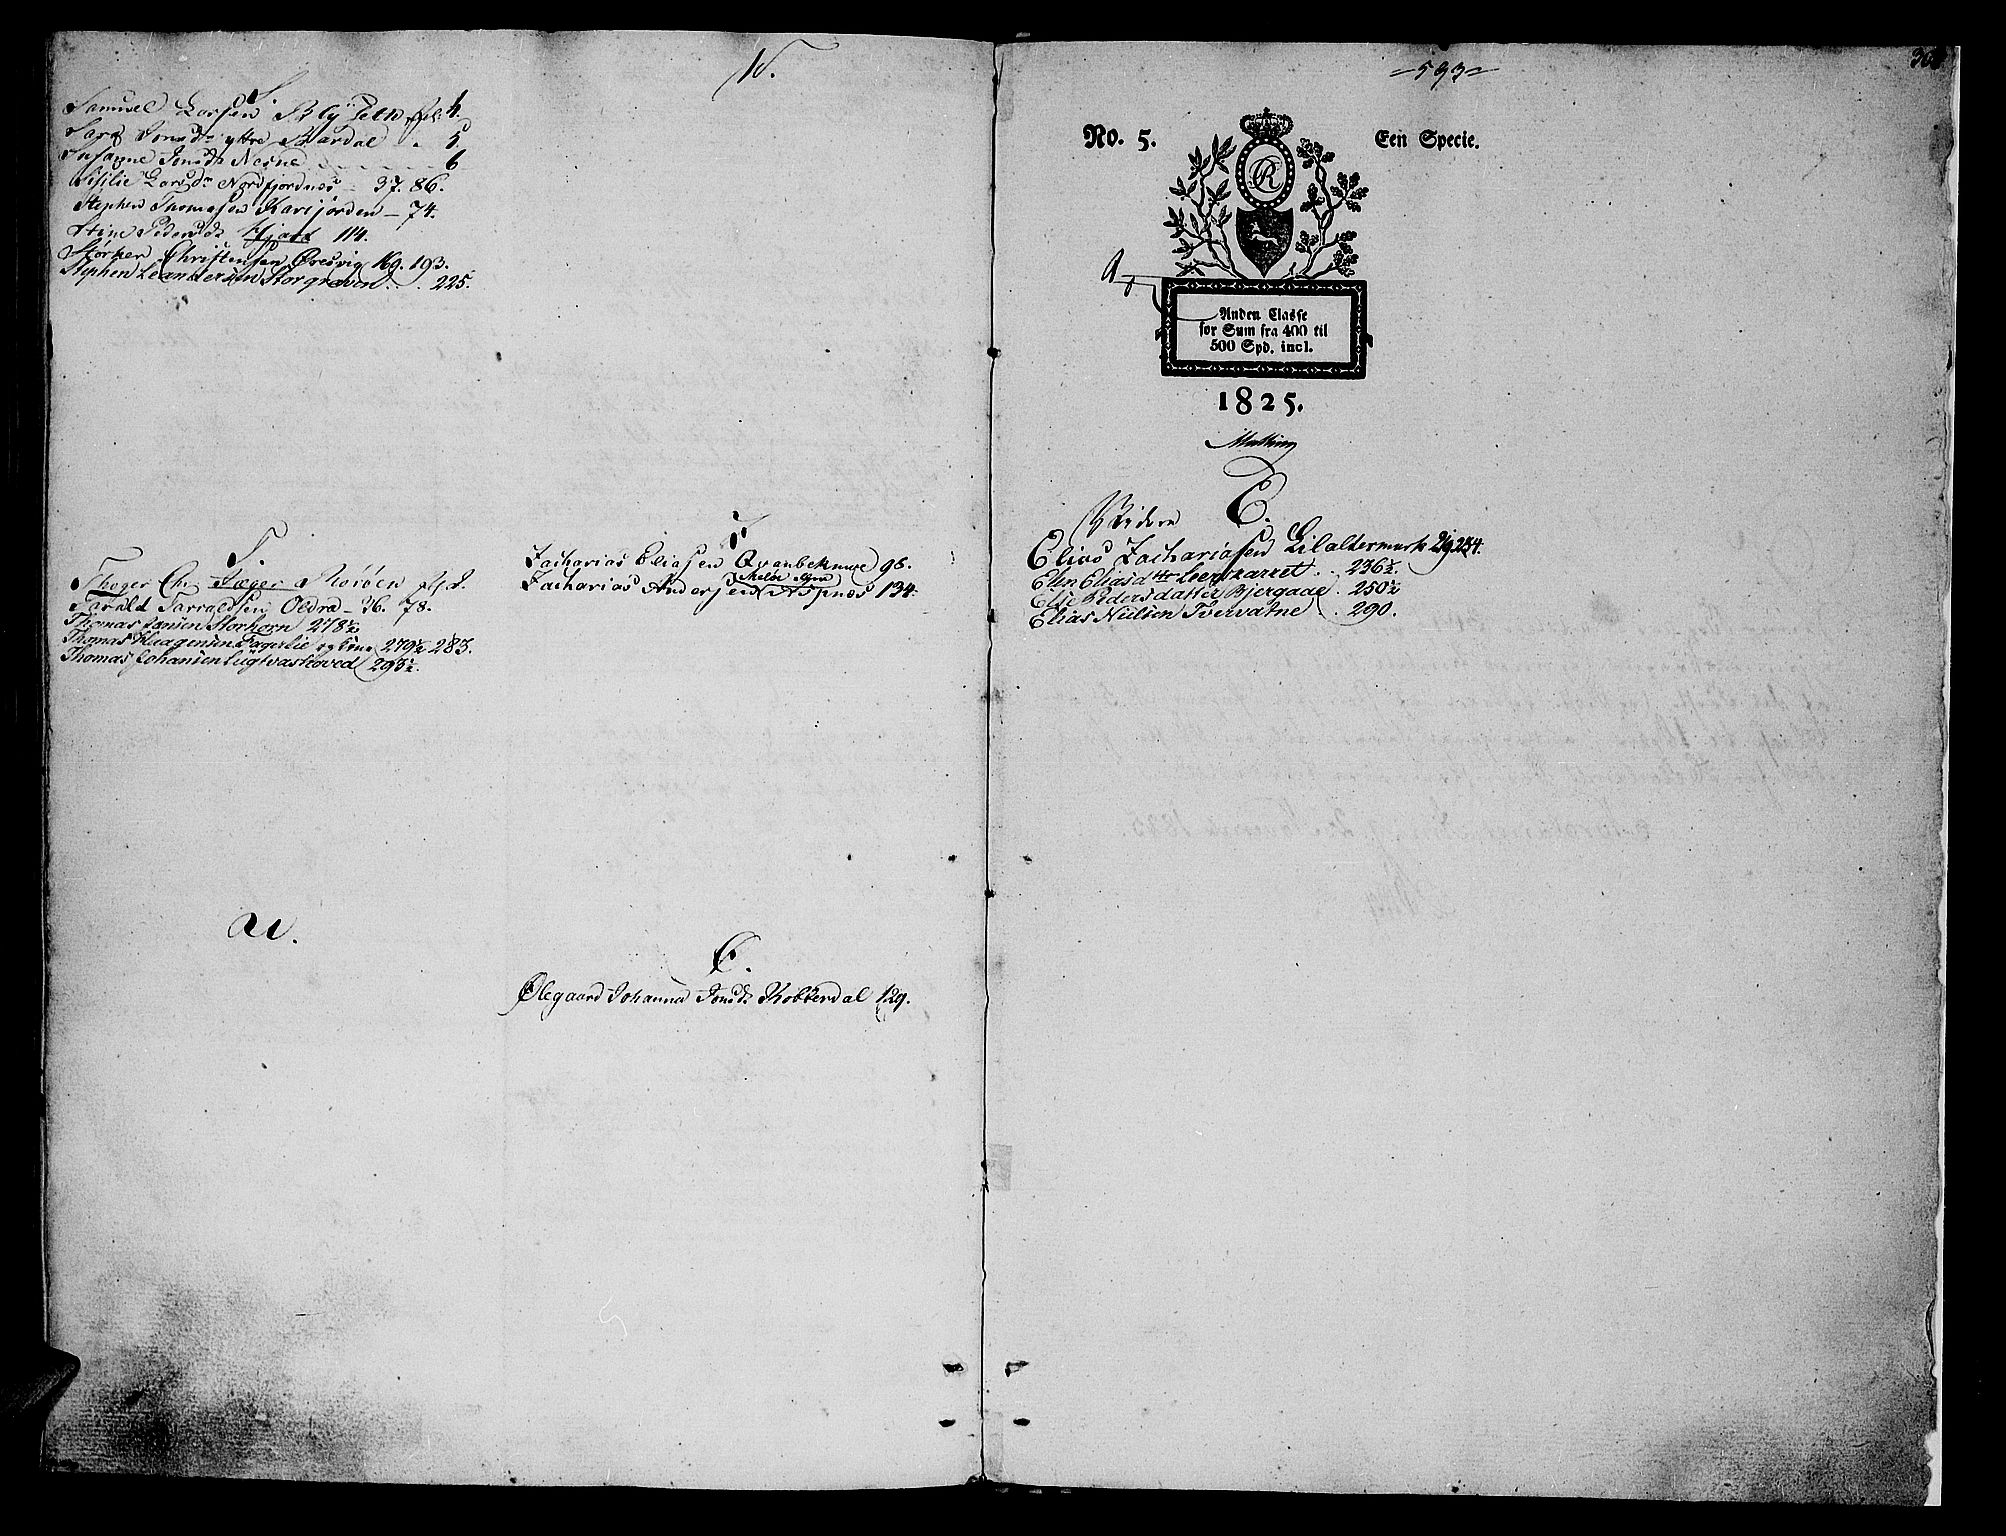 S.
Samuel Larsen fol. 4.
Sara Jonsdr ytre Bardal . 5
Susanne Jonsdr Nesne 6
Sisilie Larsdr Nordfjordnes - 37. 86.
Stephen Thomesen Karijorden - 74.
Stine Pedersdr 114.
Størker Christensen Øresvig 169. 193.
Stephen Leandersen Storgraven . . 225.
T
Thøger Chr Jæger fol.
Tarald Tarraldsen Oldra - 26. 78.
Thomas Storhorn 278½
Thomas Haagensen Fagerlie og kone 279½ 283.
Thomas Johansen 293½.
U.
V.
Z
Zacharias Eliasen 98.
Zacharias Andersen Aspnes 134.
Ø.
Ølegaard Johanna Jonsdr Kobberdal 129.
=593=
No. 5. Een Specie.
CR
Anden Classe
for Sum fra 400 til
500 Spd. incl.
1825.
Videre E.
Elias Zachariasen Lilaltermark 219. 254.
Elen Eliasdtter Leerskarret . . 236½.
Else Pedersdatter Bjergaae . 250½
Elias Nielsen Tvervatne . 290.